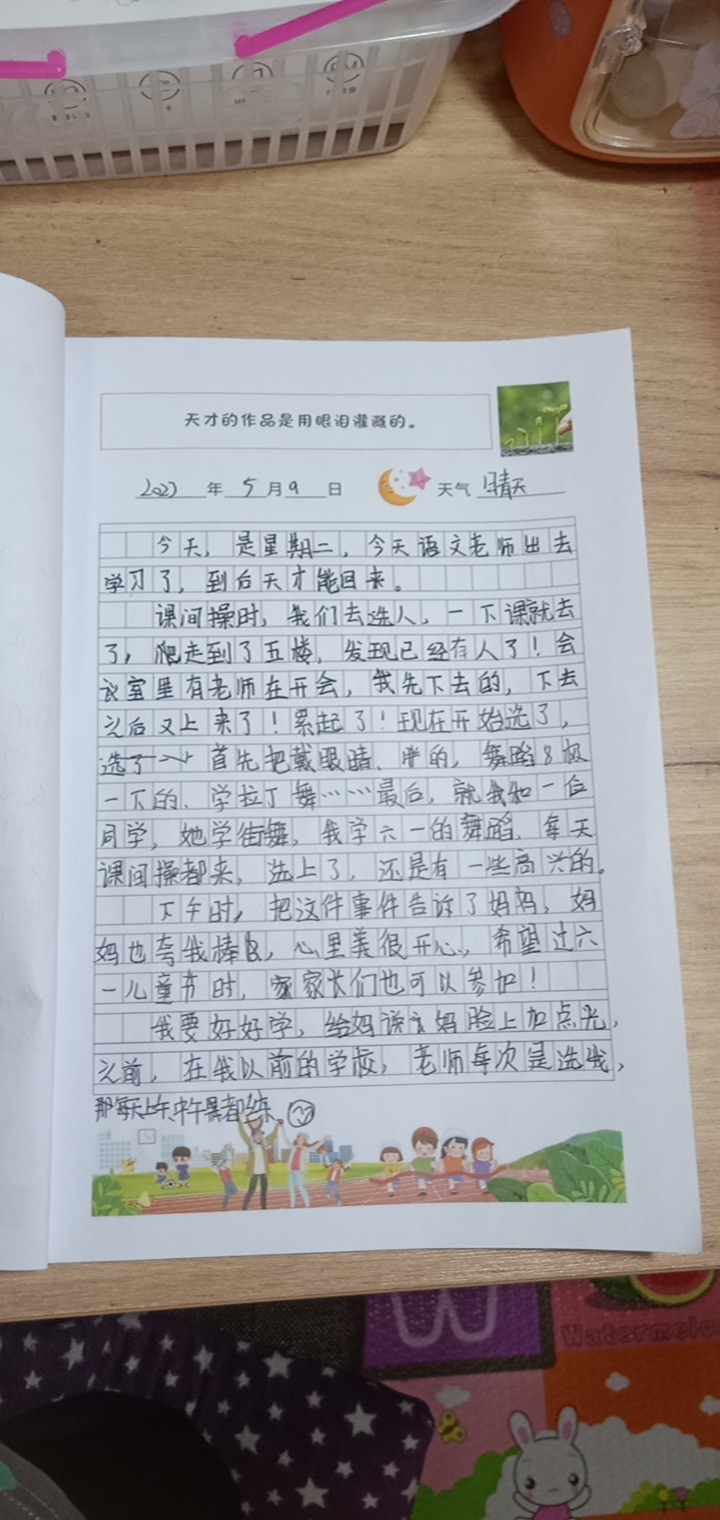 天才的作品是用眼泪灌溉的。
2023年5月9日 天气 晴天
今天，是星期二，今天语文老师出去
学习了，到后天才能回来。
课间操时，我们去选人，一下课就去
了，爬走到了五楼，发现已经有人了！会
议室里有老师在开会，我先下去的，下去
之后又上来了！累起了！现在开始选了，
首先把戴眼睛、胖的，舞蹈8级
一下的、学拉丁舞……最后，就我和一位
同学，她学街舞，我学六一的舞蹈，每天
课间操都来，选上了，还是有一些高兴的。
下午时，把这件事件告诉了妈妈，妈
妈也夸我棒，心里美很开心，希望过六
一儿童节时，家长们也可以参加！
我要好好学，给妈妈脸上加点光，
之前，在我以前的学校，老师每次是选我，
那每天上午中午都练
Watermelo
W